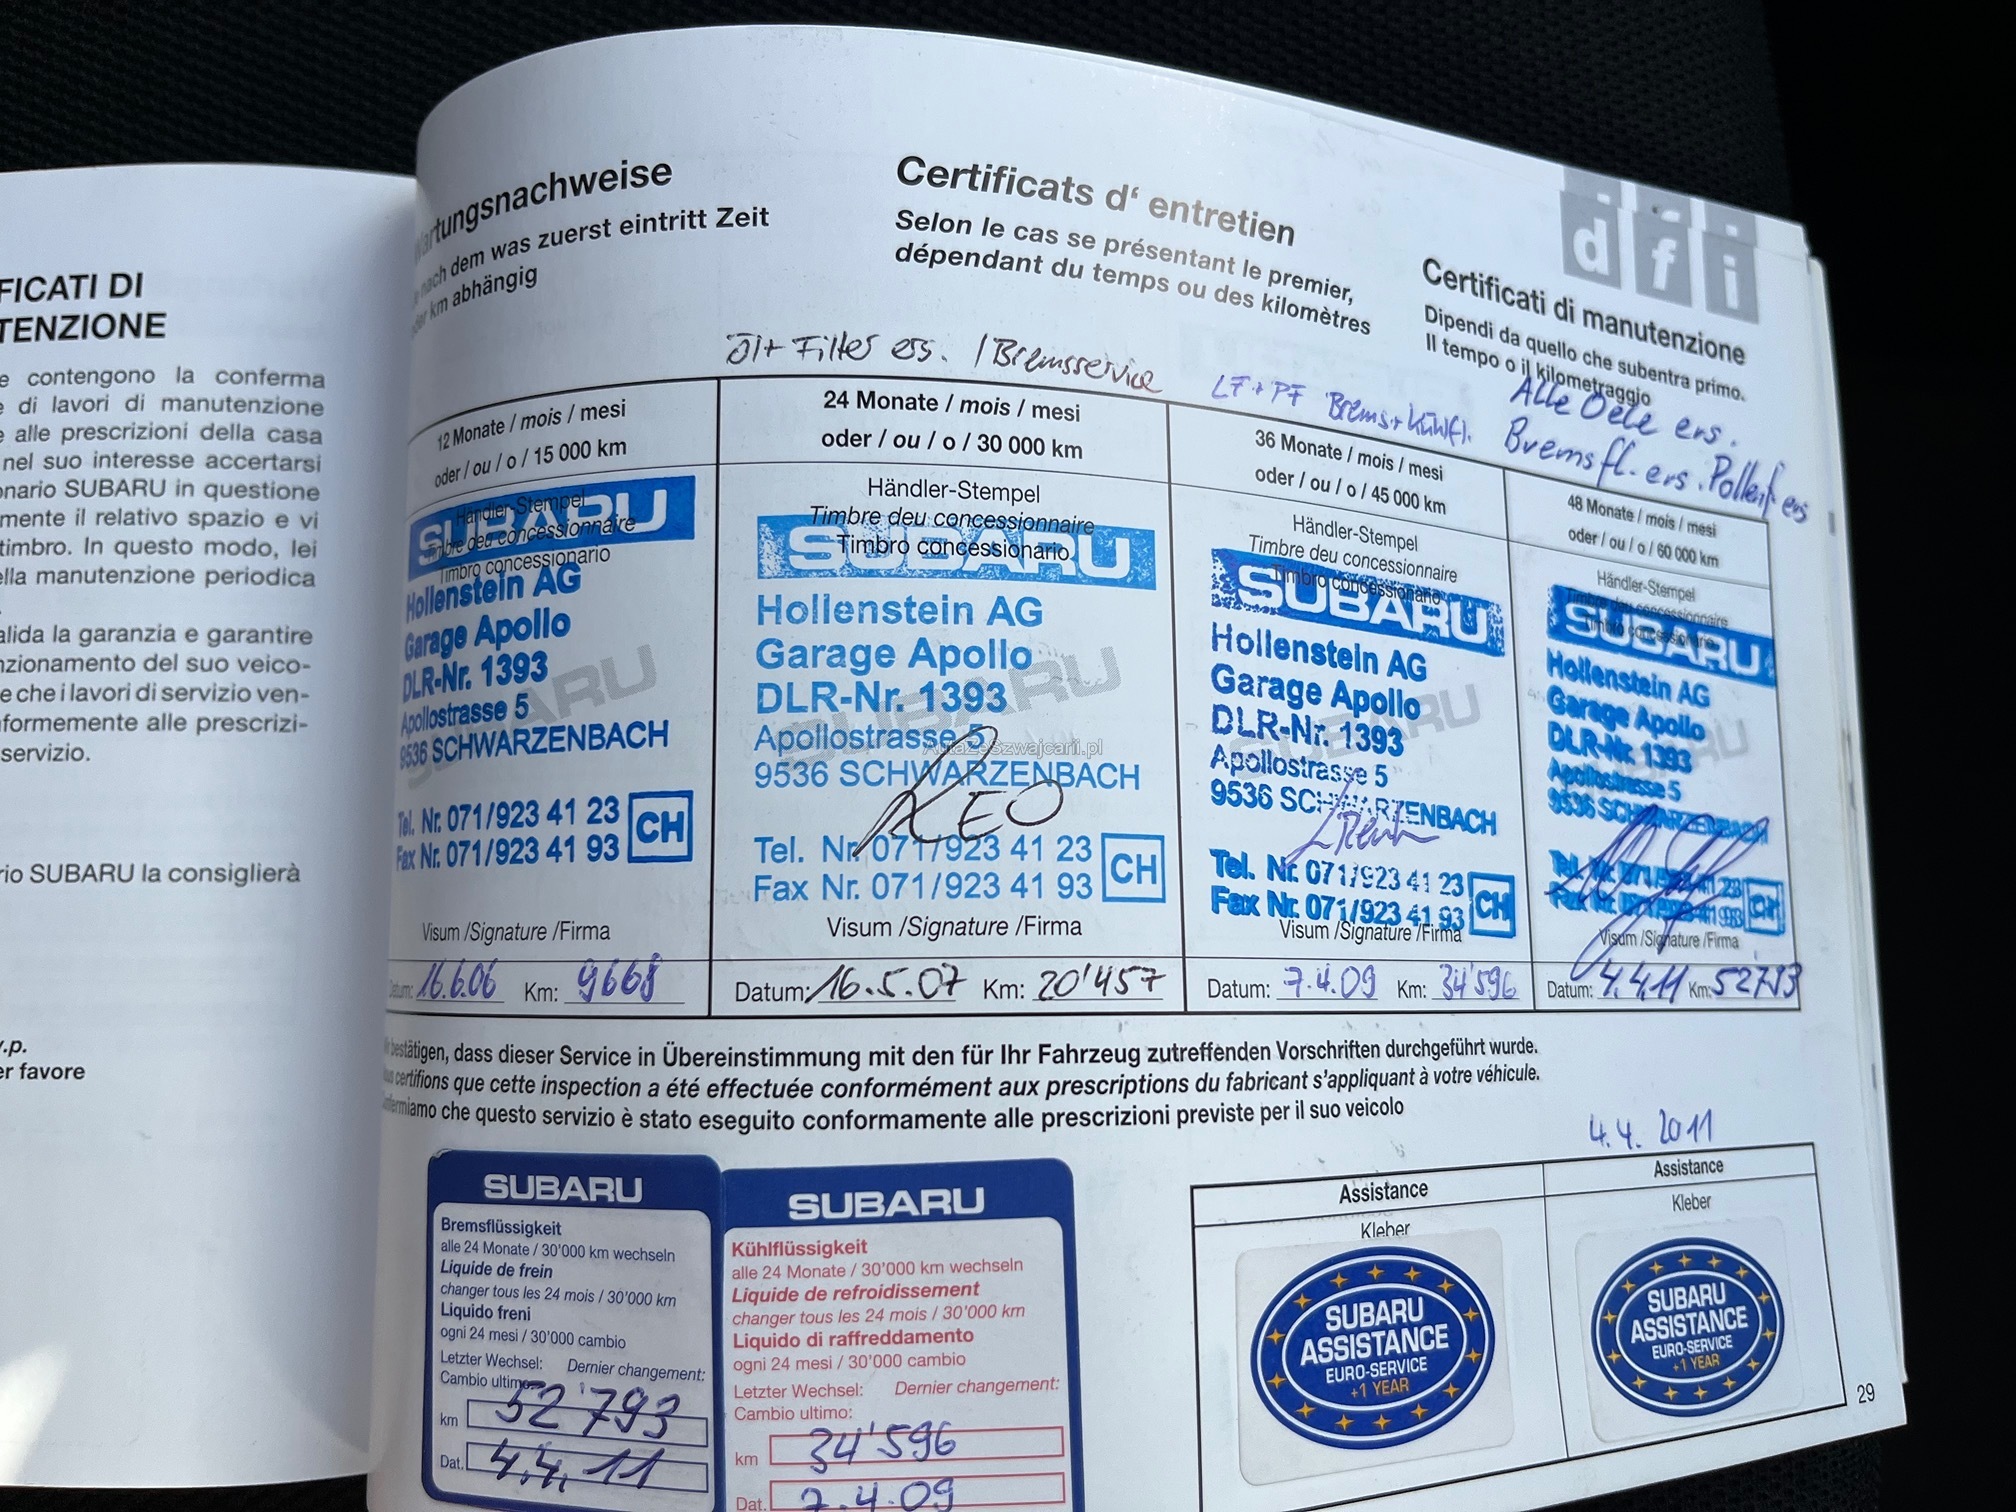 FICATI DI
TENZIONE
e contengono la conferma
e di lavori di manutenzione
e alle prescrizioni della casa
nel suo interesse accertarsi
onario SUBARU in questione
mente il relativo spazio e vi
timbro. In questo modo, lei
ella manutenzione periodica
alida la garanzia e garantire
nzionamento del suo veico-
e che i lavori di servizio ven-
formemente alle prescrizi-
servizio.
rio SUBARU la consiglierà
.p.
er favore
artungsnachweise
nach dem was zuerst eintritt Zeit
der km abhängig
Certificats d‘ entretien
Selon le cas se présentant le premier,
dépendant du temps ou des kilomètres
d f i
Certificati di manutenzione
Dipendi da quello che subentra primo.
Il tempo o il kilometraggio
Öl + Filter ers. / Bremsservice
LF + PF Brems + Kühlfl.
Alle Oele ers.
Bremsfl. ers. Pollenf. ers
12 Monate / mois / mesi
oder / ou / o / 15 000 km
Händler-Stempel
Timbre deu concessionnaire
Timbro concessionario
SUBARU
Hollenstein AG
Garage Apollo
DLR-Nr. 1393
Apollostrasse 5
9536 SCHWARZENBACH
Tel. Nr. 071/923 41 23
Fax Nr. 071/923 41 93
CH
SUBARU
Visum /Signature /Firma
Datum: 16.6.06 Km: 9668
24 Monate / mois / mesi
oder / ou / o / 30 000 km
Händler-Stempel
Timbre deu concessionnaire
Timbro concessionario
SUBARU
Hollenstein AG
Garage Apollo
DLR-Nr. 1393
Apollostrasse 5
AutaZeSzwajcarii.pl
9536 SCHWARZENBACH
LEO
Tel. Nr. 071/923 41 23
Fax Nr. 071/923 41 93
CH
SUBARU
Visum /Signature /Firma
Datum: 16.5.07 Km: 20'457
36 Monate / mois / mesi
oder / ou / o / 45 000 km
Händler-Stempel
Timbre deu concessionnaire
Timbro concessionario
SUBARU
Hollenstein AG
Garage Apollo
DLR-Nr. 1393
Apollostrasse 5
9536 SCHWARZENBACH
Tel. Nr. 071/923 41 23
Fax Nr. 071/923 41 93
CH
SUBARU
Visum /Signature /Firma
Datum: 7.4.09 Km: 34'596
48 Monate / mois / mesi
oder / ou / o / 60 000 km
Händler-Stempel
Timbre deu concessionnaire
Timbro concessionario
SUBARU
Hollenstein AG
Garage Apollo
DLR-Nr. 1393
Apollostrasse 5
9536 SCHWARZENBACH
Tel. Nr. 071/923 41 23
Fax Nr. 071/923 41 93
CH
SUBARU
Visum /Signature /Firma
Datum: 4.4.11 Km: 52793
bestätigen, dass dieser Service in Übereinstimmung mit den für Ihr Fahrzeug zutreffenden Vorschriften durchgeführt wurde.
certifions que cette inspection a été effectuée conformément aux prescriptions du fabricant s'appliquant à votre véhicule.
fermiamo che questo servizio è stato eseguito conformamente alle prescrizioni previste per il suo veicolo
SUBARU
Bremsflüssigkeit
alle 24 Monate / 30'000 km wechseln
Liquide de frein
changer tous les 24 mois / 30'000 km
Liquido freni
ogni 24 mesi / 30'000 cambio
Letzter Wechsel: Dernier changement:
Cambio ultimo:
km 52'793
Dat. 4.4.11
SUBARU
Kühlflüssigkeit
alle 24 Monate / 30'000 km wechseln
Liquide de refroidissement
changer tous les 24 mois / 30'000 km
Liquido di raffreddamento
ogni 24 mesi / 30'000 cambio
Letzter Wechsel: Dernier changement:
Cambio ultimo:
km 34'596
Dat. 7.4.09
4.4.2011
Assistance
Kleber
SUBARU
ASSISTANCE
EURO-SERVICE
+1 YEAR
Assistance
Kleber
SUBARU
ASSISTANCE
EURO-SERVICE
+1 YEAR
29